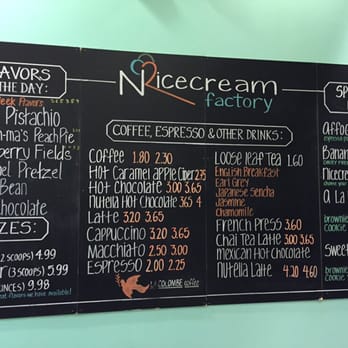 AVORS
THE DAY:
eek Flavors
Pistachio
ma's Peach Pie
erry Fields
el Pretzel
Bean
hocolate
ZES:
2 scoops) 4.99
(3 scoops) 5.99
OUNCES) 9.98
Nicecream
factory
COFFEE, ESPRESSO & OTHER DRINKS:
Coffee 1.80 2.30
Hot Caramel apple Cider 2.75
Hot Chocolate 3.00 3.65
Nutella Hot Chocolate 3.65 4
Latte 3.20 3.65
Cappuccino 3.20 3.65
Macchiato 2.50 3.00
Espresso 2.00 2.25
LA COLOMBE coffee
Loose leaf Tea 1.60
English Breakfast
Earl Grey
Japanese Sencha
Jasmine
Chamomile
French Press 3.60
Chai Tea Latte 3.00 3.65
mexican Hot Chocolate
Nutella Latte 4.20 4.60
SP
Affoc
Banan
Nicecre
A La
brownie
Cookie
Sweet
brownie
Cookie